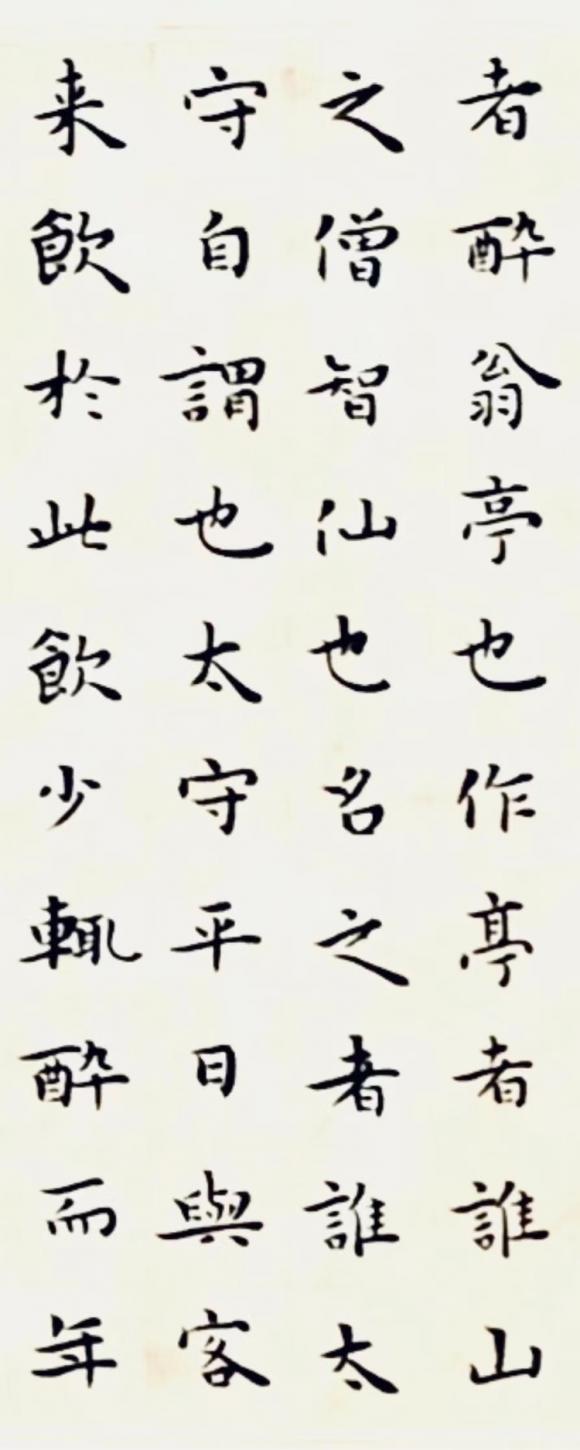 者醉翁亭也作亭者誰山
之僧智仙也名之者誰太
守自謂也太守平日與客
来飲於此飲少輒醉而年